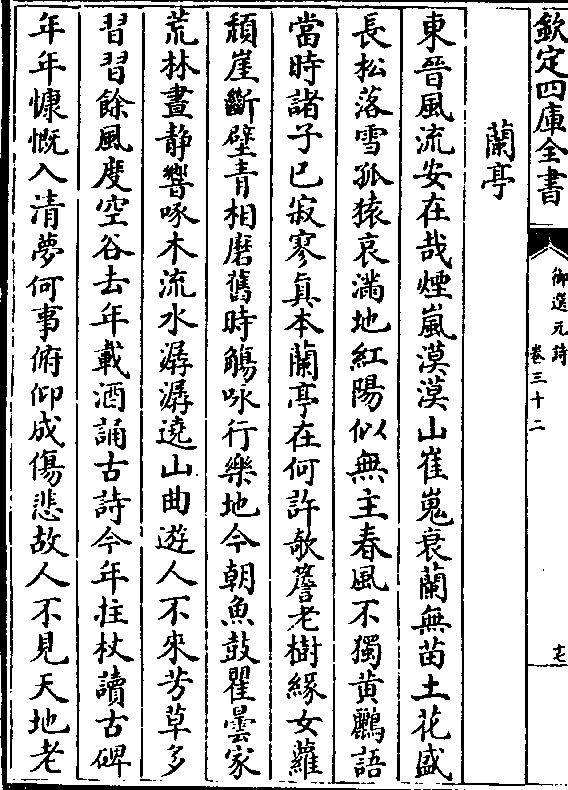 欽定四庫全書
御選元詩
卷三十二
蘭亭
東晉風流安在哉煙嵐漠漠山崔嵬衰蘭無苗土花盛
長松落雪孤猿哀滿地紅陽似無主春風不獨黃鸝語
當時諸子已寂寥真本蘭亭在何許欹簷老樹緣女蘿
頹崖斷壁青相磨舊時觴咏行樂地今朝魚鼓瞿曇家
荒林晝靜響啄木流水潺潺遶山曲遊人不來芳草多
習習餘風度空谷去年載酒誦古詩今年拄杖讀古碑
年年慷慨入清夢何事俯仰成傷悲故人不見天地老